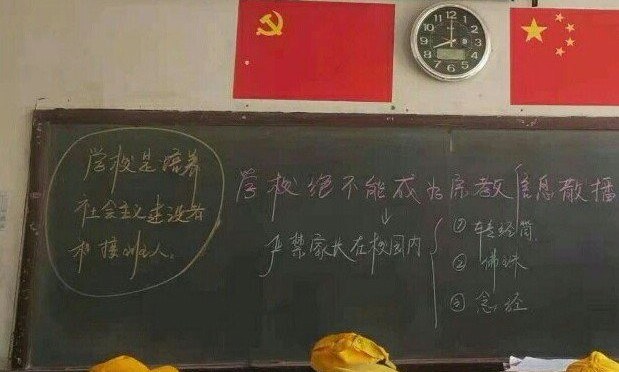 学校是培养
社会主义建设者
和接班人。
学校绝不能成为宗教信息散播
严禁家长在校园内
① 转经筒
② 佛珠
③ 念经
12
1
2
3
4
5
6
7
8
9
10
11